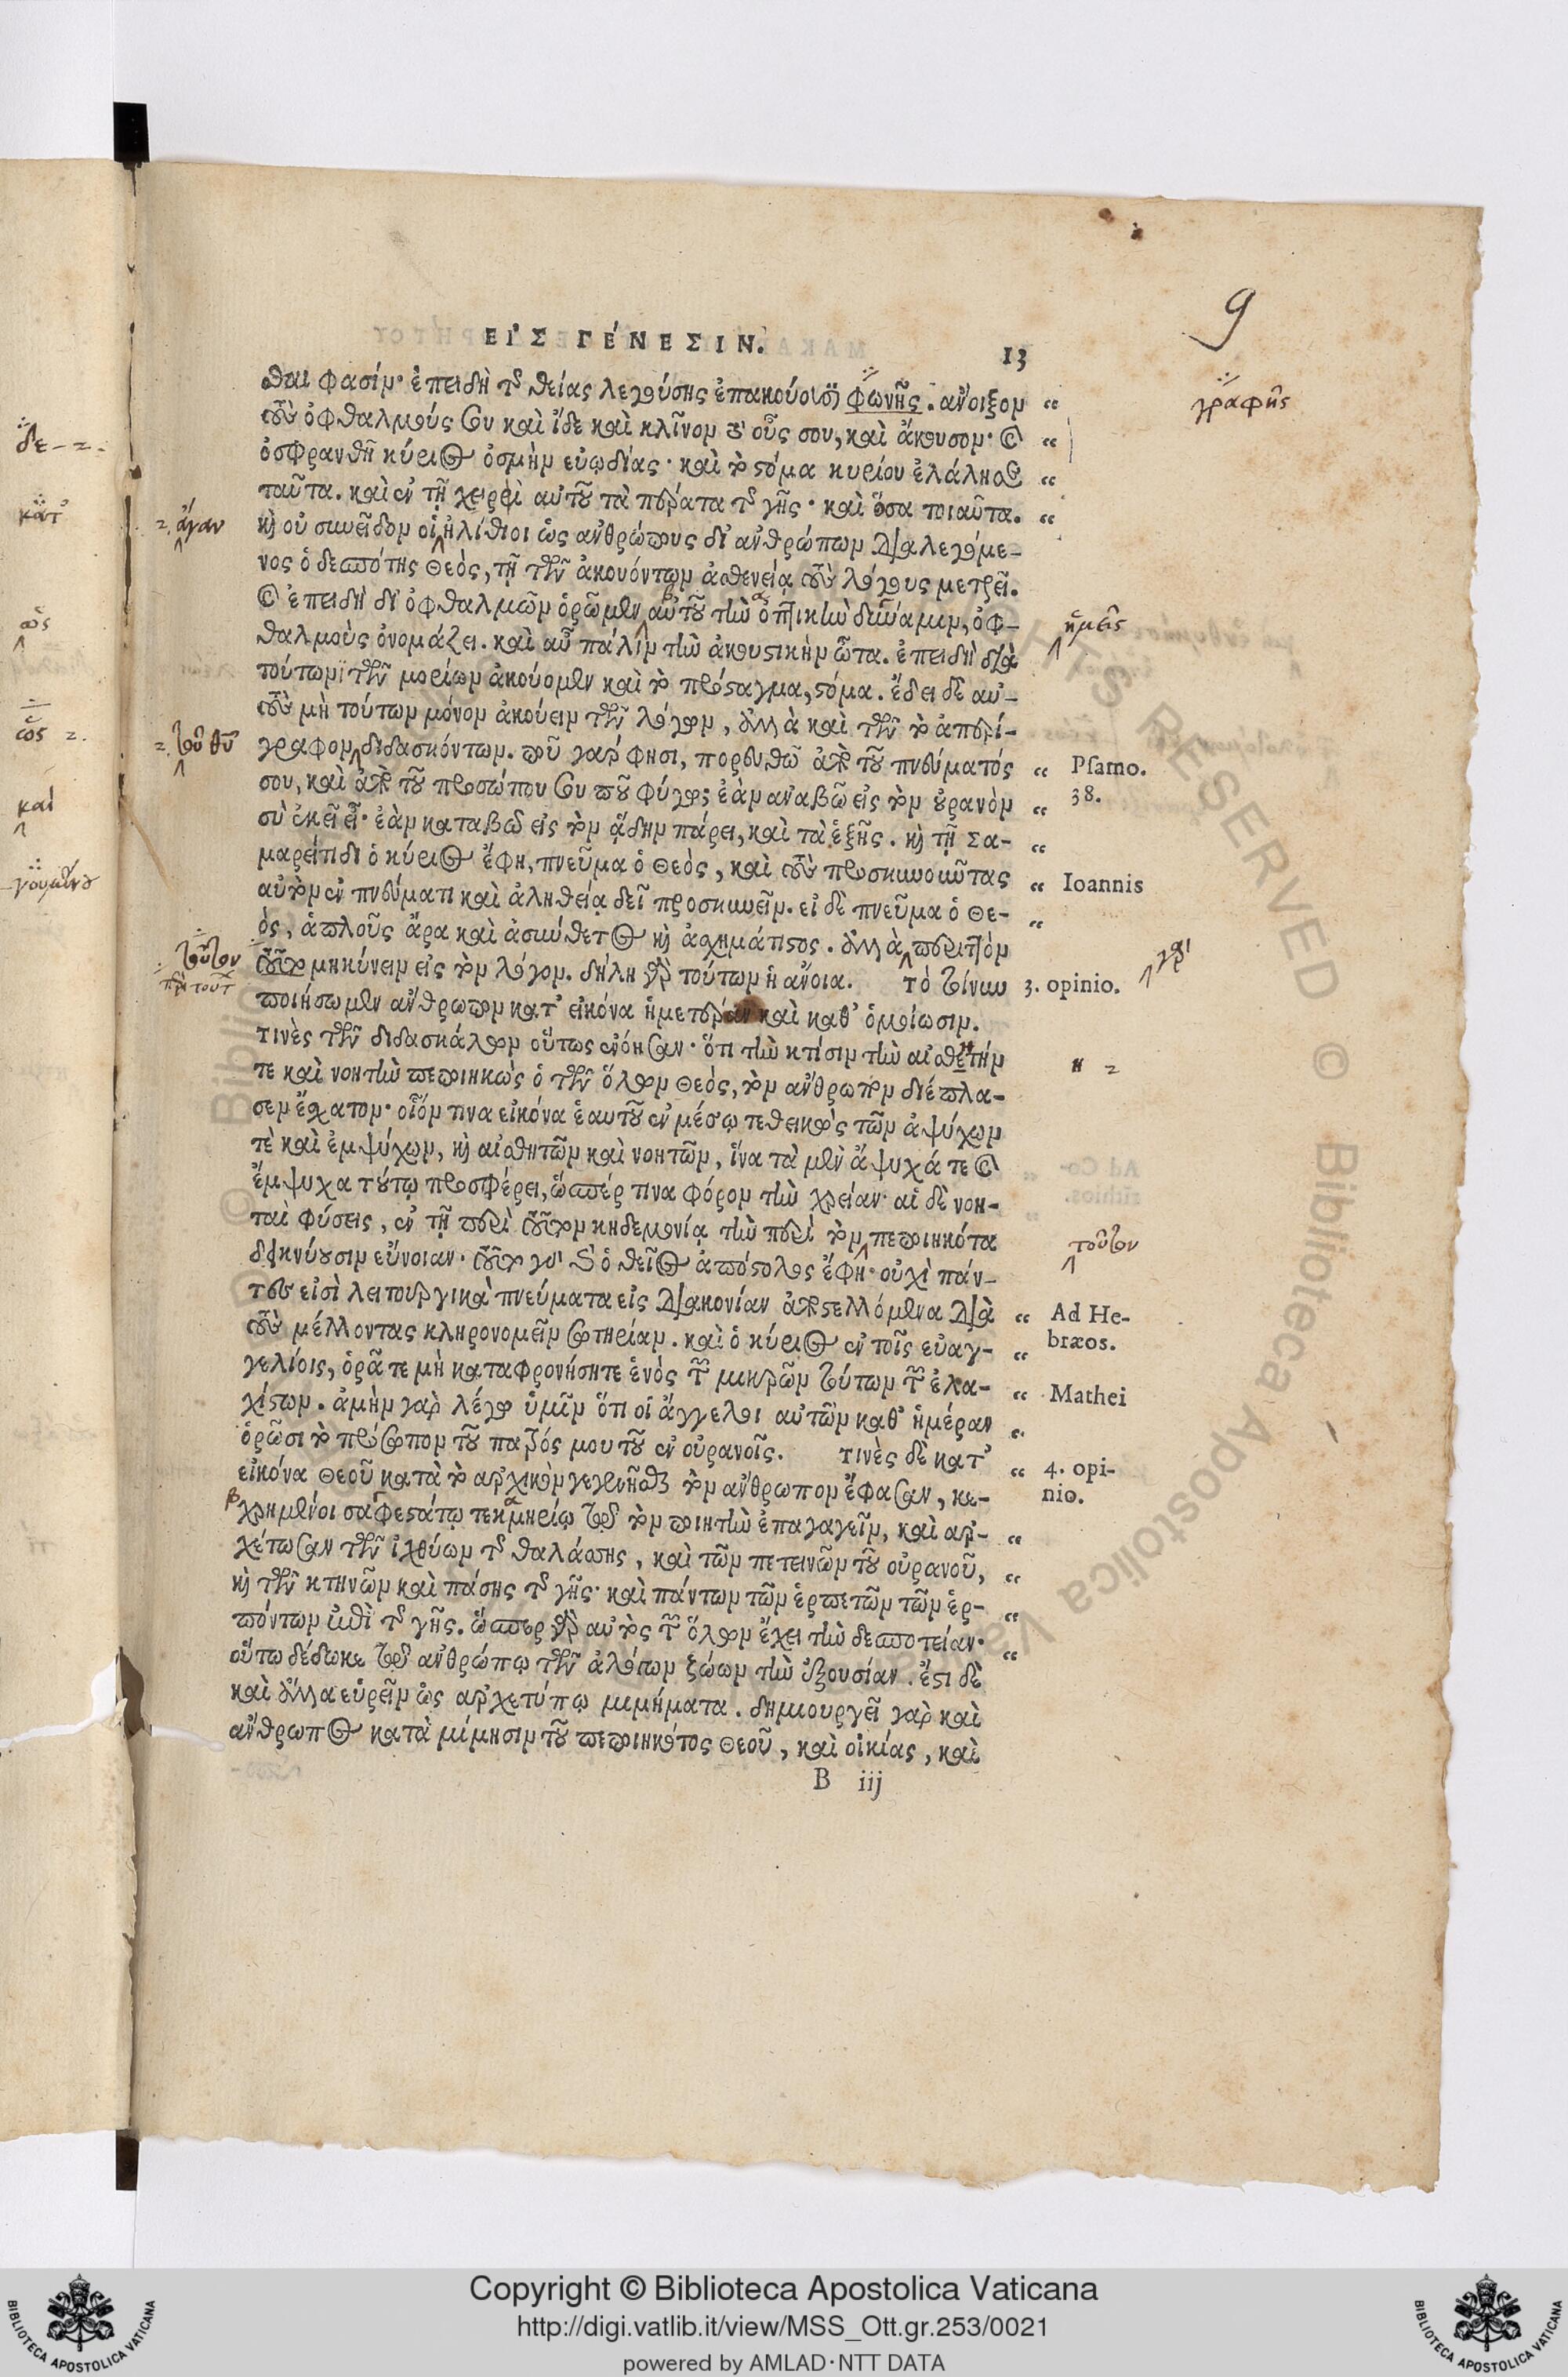 9
ΕἸΣ ΓΈΝΕΣΙΝ. 13
θαι φασίν· ἐπειδὴ τῆς θείας λεγούσης ἐπακούουσι φωνῆς. ἄνοιξον “ γραφῆς
τοὺς ὀφθαλμούς σου καὶ ἴδε καὶ κλῖνον τὸ οὖς σου, καὶ ἄκουσον· καὶ “
δε
ὀσφρανθῆ κύριος ὀσμὴν εὐωδίας· καὶ τὸ στόμα κυρίου ἐλάλησε “
κατ’
ταῦτα. καὶ ἐν τῇ χειρὶ αὐτοῦ τὰ πέρατα τῆς γῆς· καὶ ὅσα τοιαῦτα. “
ἄγαν
καὶ οὐ συνεῖδον οἱ ἠλίθιοι ὡς ἀνθρώποις δι’ ἀνθρώπων διαλεγόμε-
νος ὁ δεσπότης Θεὸς, τῇ τῶν ἀκουόντων ἀσθενείᾳ τοὺς λόγους μετρεῖ.
καὶ ἐπειδὴ δι’ ὀφθαλμῶν ὁρῶμεν αὐτοῦ τὴν ὀπτικὴν δύναμιν, ὀφ- ἡμεῖς
ὡς
θαλμοὺς ὀνομάζει. καὶ αὖ πάλιν τὴν ἀκουστικὴν ὦτα. ἐπειδὴ διὰ
τούτων τῶν μορίων ἀκούομεν καὶ τὸ πρόσταγμα, στόμα. ἔδει δὲ αὐ-
ὡς
τοὺς μὴ τούτων μόνον ἀκούειν τῶν λόγων, ἀλλὰ καὶ τῶν τὸ ἀπερί-
τοῦ θυ
γραφον διδασκόντων. ποῦ γάρ φησι, πορευθῶ ἀπὸ τοῦ πνεύματός “ Psamo.
σου, καὶ ἀπὸ τοῦ προσώπου σου ποῦ φύγω; ἐὰν ἀναβῶ εἰς τὸν οὐρανὸν “ 38.
καὶ
σὺ ἐκεῖ εἶ· ἐὰν καταβῶ εἰς τὸν ᾅδην πάρει, καὶ τὰ ἑξῆς. καὶ τῇ Σα- “
μαρείτιδι ὁ κύριος ἔφη, πνεῦμα ὁ Θεὸς, καὶ τοὺς προσκυνοῦντας “ Ioannis
αὐτὸν ἐν πνεύματι καὶ ἀληθείᾳ δεῖ προσκυνεῖν. εἰ δὲ πνεῦμα ὁ Θε- “
ὸς, ἁπλοῦς ἄρα καὶ ἀσύνθετος καὶ ἀσχημάτιστος. ἀλλὰ περιττὸν γὰρ
τοῦτον
τούτων μηκύνειν εἰς τὸν λόγον. δήλη γὰρ τούτων ἡ ἄνοια. Τὸ τίνυν 3. opinio.
ποιήσωμεν ἄνθρωπον κατ’ εἰκόνα ἡμετέραν καὶ καθ’ ὁμοίωσιν.
τινὲς τῶν διδασκάλων οὕτως ἐνόησαν· ὅτι τὴν κτίσιν τὴν αἰσθετήν η
τε καὶ νοητὴν πεποιηκὼς ὁ τῶν ὅλων Θεὸς, τὸν ἄνθρωπον διέπλα-
σεν ἔσχατον· οἷόν τινα εἰκόνα ἑαυτοῦ ἐν μέσῳ τεθεικὼς τῶν ἀψύχων
τὲ καὶ ἐμψύχων, καὶ αἰσθητῶν καὶ νοητῶν, ἵνα τὰ μὲν ἄψυχά τε καὶ
ἔμψυχα τούτῳ προσφέρει, ὥσπέρ τινα φόρον τὴν χρείαν· αἱ δὲ νοη-
ταὶ φύσεις, ἐν τῇ περὶ τοῦτον κηδεμονίᾳ τὴν περὶ τὸν πεποιηκότα τοῦτον
δεικνύουσιν εὔνοιαν. τοῦτο γάρ τοι ὁ θεῖος ἀπόστολος ἔφη· οὐχὶ πάν-
τες εἰσὶ λειτουργικὰ πνεύματα εἰς διακονίαν ἀποστελλόμενα διὰ “ Ad He-
τοὺς μέλλοντας κληρονομεῖν σωτηρίαν. καὶ ὁ κύριος ἐν τοῖς εὐαγ- “ bræos.
γελίοις, ὁρᾶτε μὴ καταφρονήσητε ἑνὸς τῶν μικρῶν τούτων τῶν ἐλα- “ Mathei
χίστων. ἀμὴν γὰρ λέγω ὑμῖν ὅτι οἱ ἄγγελοι αὐτῶν καθ’ ἡμέραν “
ὁρῶσι τὸ πρόσωπον τοῦ πατρός μου τοῦ ἐν οὐρανοῖς. Τινὲς δὲ κατ’ “ 4. opi-
εἰκόνα Θεοῦ κατὰ τὸ ἀρχικὸν γεγενῆσθαι τὸν ἄνθρωπον ἔφασαν, κε- nio.
χρημένοι σαφεστάτῳ τεκμηρίῳ τῷ τὸν ποιητὴν ἐπαγαγεῖν, καὶ ἀρ- “
χέτωσαν τῶν ἰχθύων τῆς θαλάσσης, καὶ τῶν πετεινῶν τοῦ οὐρανοῦ, “
καὶ τῶν κτηνῶν καὶ πάσης τῆς γῆς· καὶ πάντων τῶν ἑρπετῶν τῶν ἑρ- “
πόντων ἐπὶ τῆς γῆς. ὥσπερ γὰρ αὐτὸς τῶν ὅλων ἔχει τὴν δεσποτείαν· “
οὕτω δέδωκε τῷ ἀνθρώπῳ τῶν ἀλόγων ζώων τὴν ἐξουσίαν. ἔστι δὲ
καὶ ἄλλα εὑρεῖν ὡς ἀρχετύπῳ μιμήματα. δημιουργεῖ γὰρ καὶ
ἄνθρωπος κατὰ μίμησιν τοῦ πεποιηκότος Θεοῦ, καὶ οἰκίας, καὶ
B iij
Copyright © Biblioteca Apostolica Vaticana
http://digi.vatlib.it/view/MSS_Ott.gr.253/0021
powered by AMLAD·NTT DATA
BIBLIOTECA APOSTOLICA VATICANA
BIBLIOTECA APOSTOLICA VATICANA